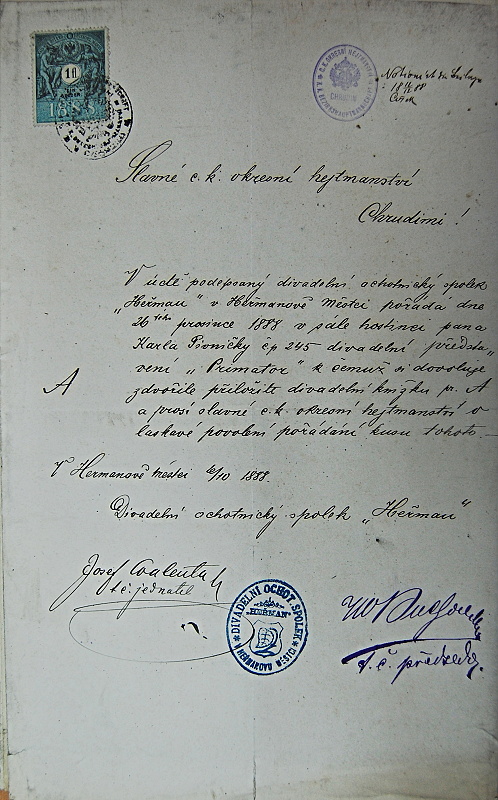 1 fl
C. K. OKRESNÍ HEJTMANSTVÍ
CHRUDIM
Slavné c. k. okresní hejtmanství
Chrudimi!
V úctě podepsaný divadelní ochotnický spolek
„Heřman" v Heřmanově Městci pořádá dne
26 prosince 1888 v sále hostinci pana
Karla Pivničky čp 245 divadelní představ
vení „Primator" k čemuž si dovoluje
A zdvořile přiložiti divadelní knížku pr. A
a prosí slavné c. k. okresní hejtmanství o
laskavé povolení pořádání kusu tohoto.
V Heřmanově Městci 1888.
Divadelní ochotnický spolek „Heřman"
Josef
t. č. jednatel
DIVADELNÍ OCHOT. SPOLEK
„HEŘMAN"
V HEŘMANOVU MĚSTCI
t. č. předseda.